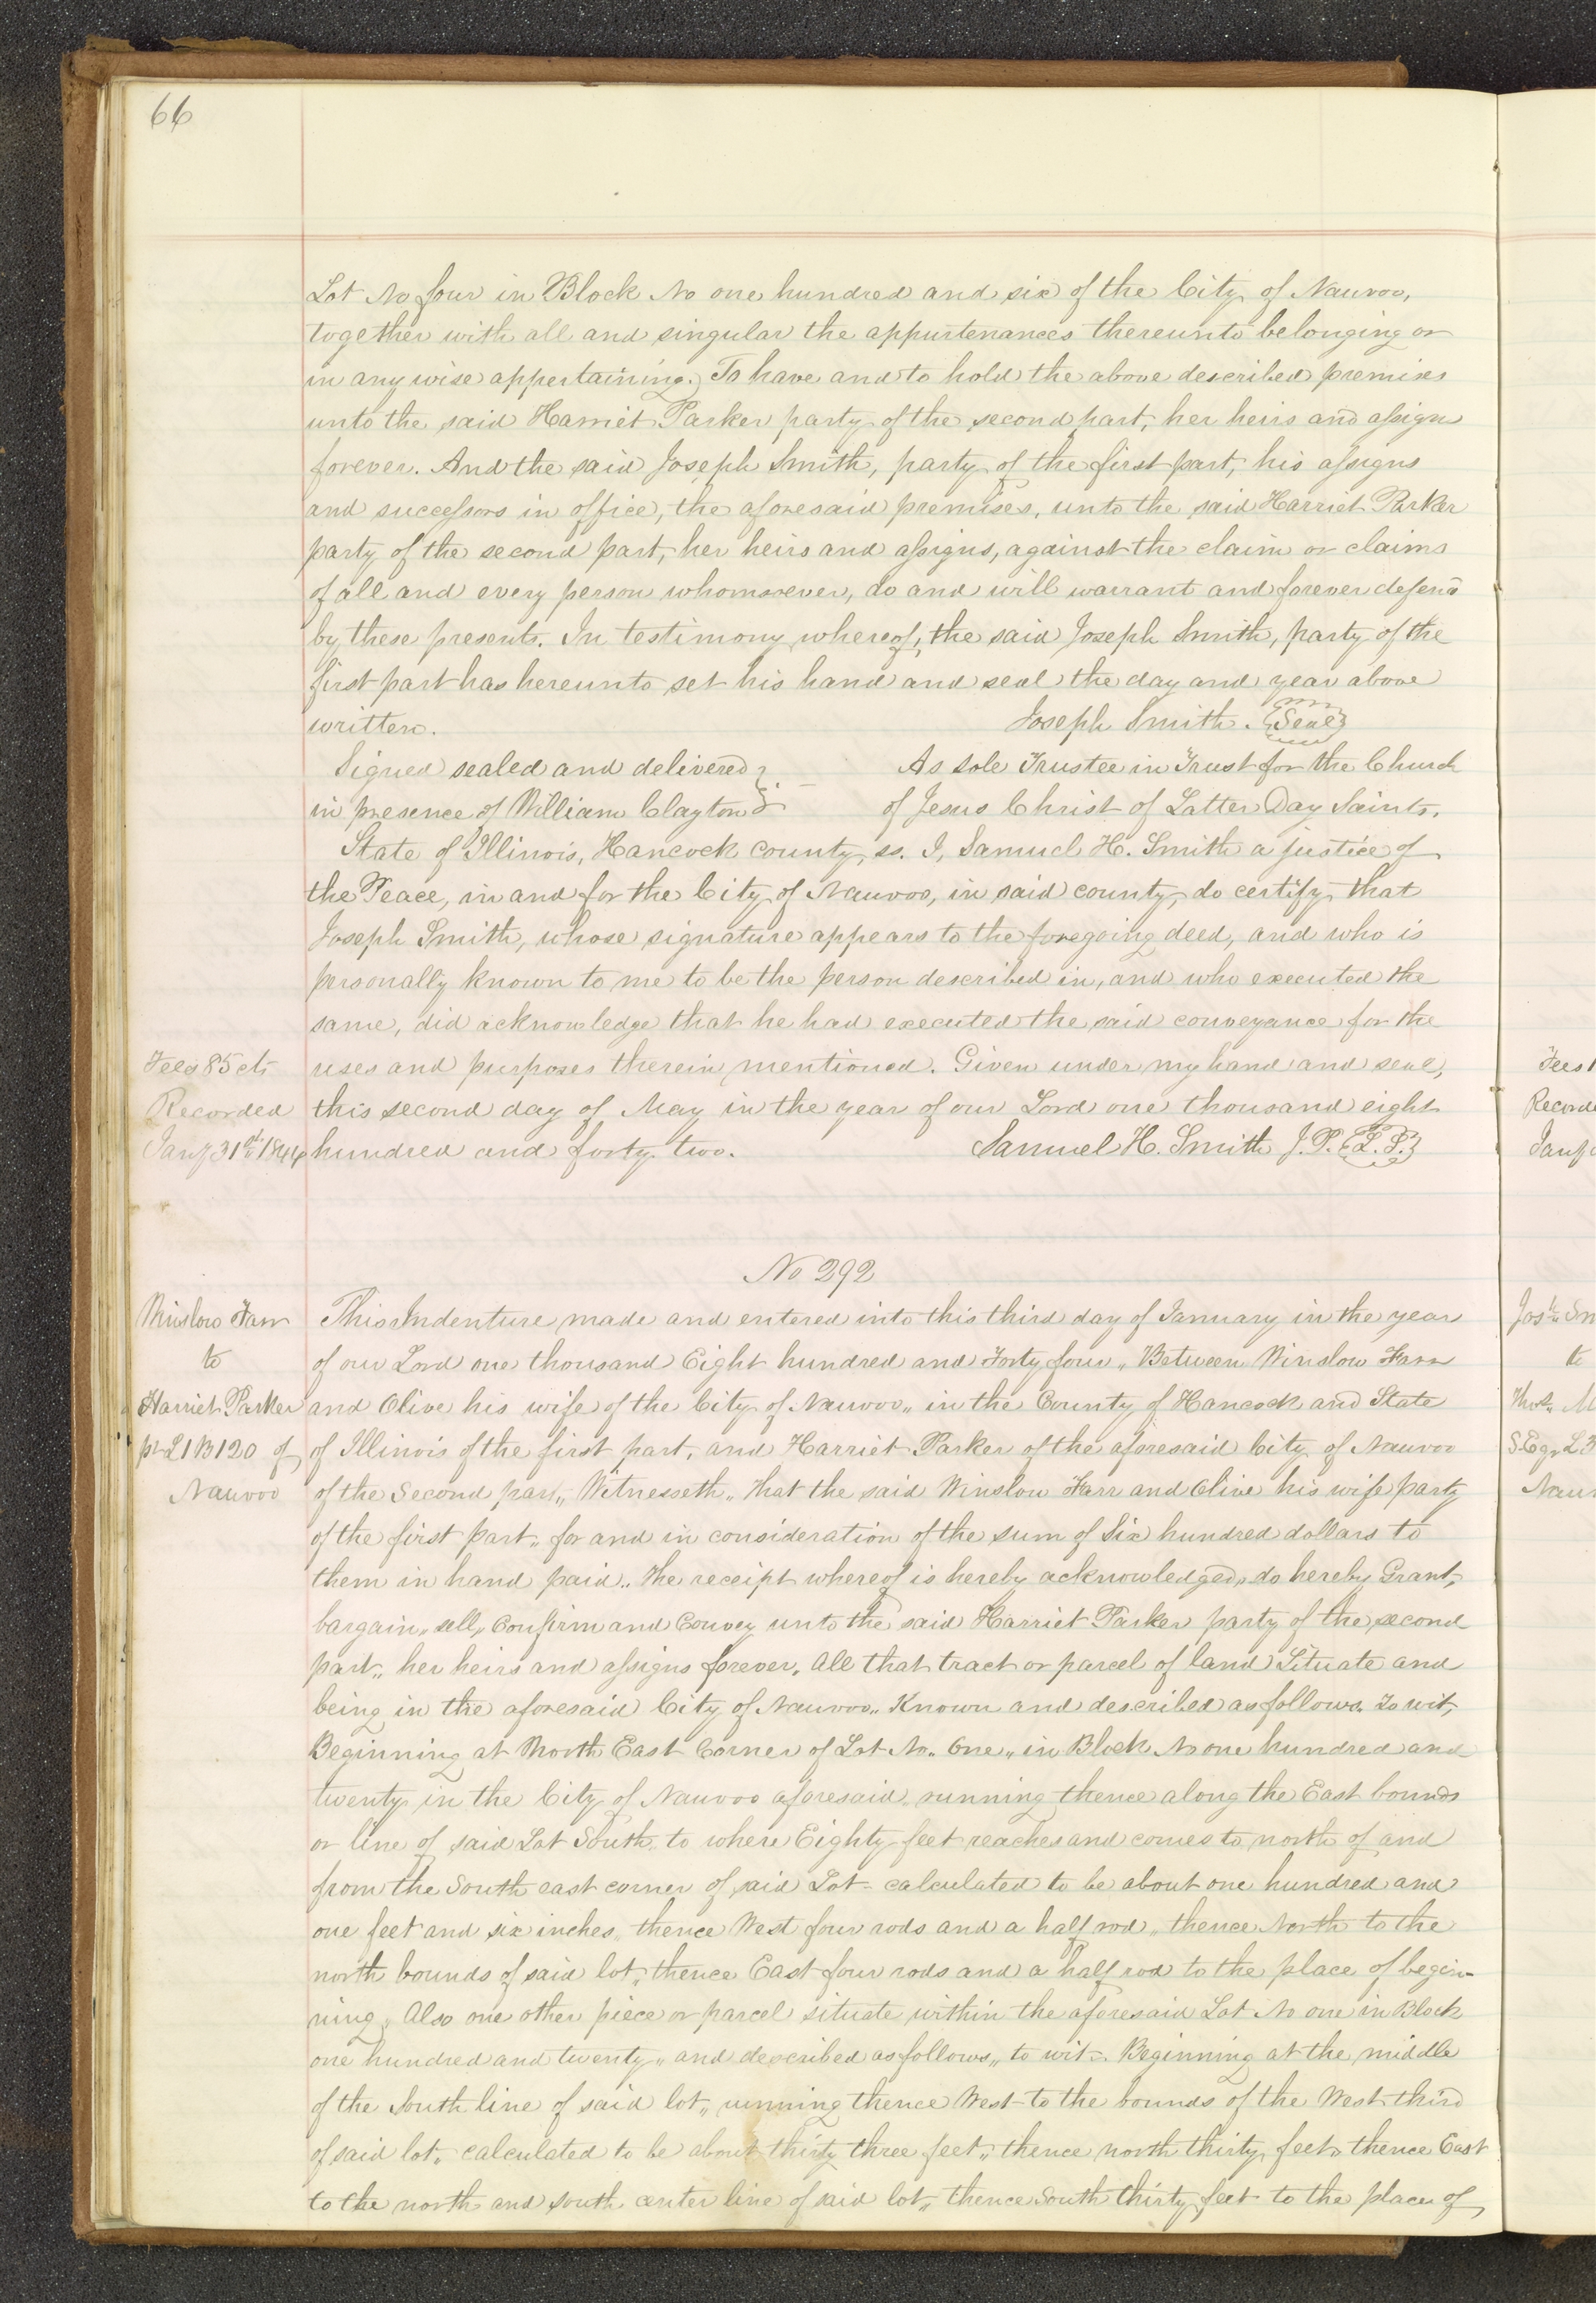 66
Lot No four in Block No one hundred and six of the City of Nauvoo,
together with all and singular the appurtenances thereunto belonging or
in any wise appertaining. To have and to hold the above described premises
unto the said Harriet Parker party of the second part, her heirs and assigns
forever. And the said Joseph Smith, party of the first part, his assigns
and successors in office, the aforesaid premises, unto the said Harriet Parker
party of the second part, her heirs and assigns, against the claim or claims
of all and every person whomsoever, do and will warrant and forever defend
by these presents. In testimony whereof, the said Joseph Smith, party of the
first part has hereunto set his hand and seal the day and year above
written. Joseph Smith. {Seal}
Signed sealed and delivered } As sole Trustee in Trust for the Church
in presence of William Clayton } of Jesus Christ of Latter Day Saints.
State of Illinois, Hancock County, ss. I, Samuel H. Smith a justice of
the Peace, in and for the City of Nauvoo, in said county, do certify that
Joseph Smith, whose signature appears to the foregoing deed, and who is
personally known to me to be the person described in, and who executed the
same, did acknowledge that he had executed the said conveyance for the
Fees 85 cts uses and purposes therein mentioned. Given under my hand and seal,
Recorded this second day of May in the year of our Lord one thousand eight
Jany 31st 1844 hundred and forty two. Samuel H. Smith J.P. {L.S.}
No 292
Winslow Farr This Indenture made and entered into this third day of January in the year
to of our Lord one thousand Eight hundred and Forty four „ Between Winslow Farr
Harriet Parker and Olive his wife of the City of Nauvoo „ in the County of Hancock and State
pt L 1 B 120 of of Illinois of the first part, and Harriet Parker of the aforesaid City of Nauvoo
Nauvoo of the Second part „ Witnesseth „ That the said Winslow Farr and Olive his wife party
of the first part „ for and in consideration of the sum of Six hundred dollars to
them in hand paid „ the receipt whereof is hereby acknowledged „ do hereby Grant,
bargain „ sell „ Confirm and Convey unto the said Harriet Parker party of the second
part „ her heirs and assigns forever, all that tract or parcel of land Situate and
being in the aforesaid City of Nauvoo „ Known and described as follows. To wit,
Beginning at North East Corner of Lot No. One „ in Block No one hundred and
twenty in the City of Nauvoo aforesaid „ running thence along the East bounds
or line of said Lot South „ to where Eighty feet reaches and comes to north of and
from the South east corner of said Lot - calculated to be about one hundred and
one feet and six inches „ thence West four rods and a half rod „ thence North to the
north bounds of said lot „ thence East four rods and a half rod to the place of begin-
ning „ Also one other piece or parcel situate within the aforesaid Lot No one in Block
one hundred and twenty „ and described as follows „ to wit - Beginning at the middle
of the South line of said lot „ running thence West to the bounds of the West third
of said lot „ calculated to be about thirty three feet „ thence north thirty feet „ thence East
to the north and south center line of said lot „ thence South thirty feet to the place of
Fees
Recorde
Jany
Jos. Sm
to
Nauv